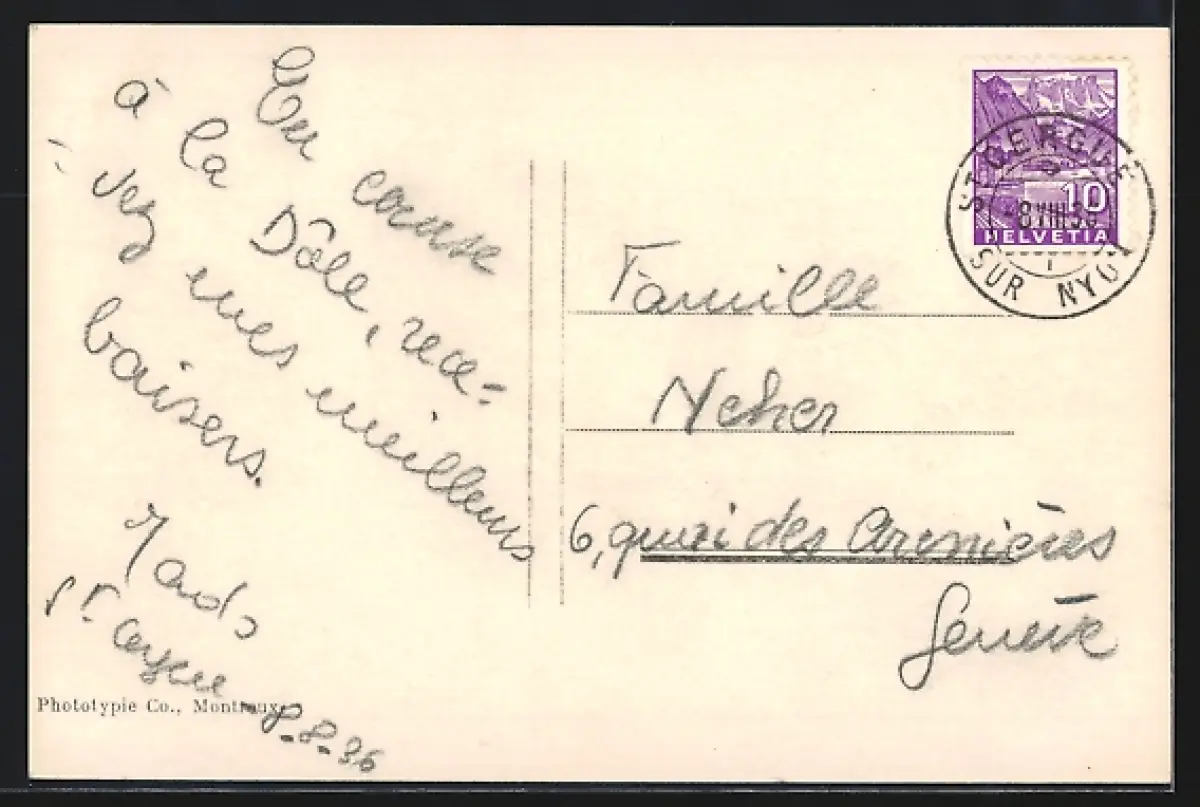 En course
à la Dôle, rece-
vez mes meilleurs
baisers.
Mado
St. Cergue 8-8-36
Phototypie Co., Montreux
10
HELVETIA
ST CERGUE
-8.VIII.36
SUR NYON
Famille
Neher
6, quai des Arénières
Genève